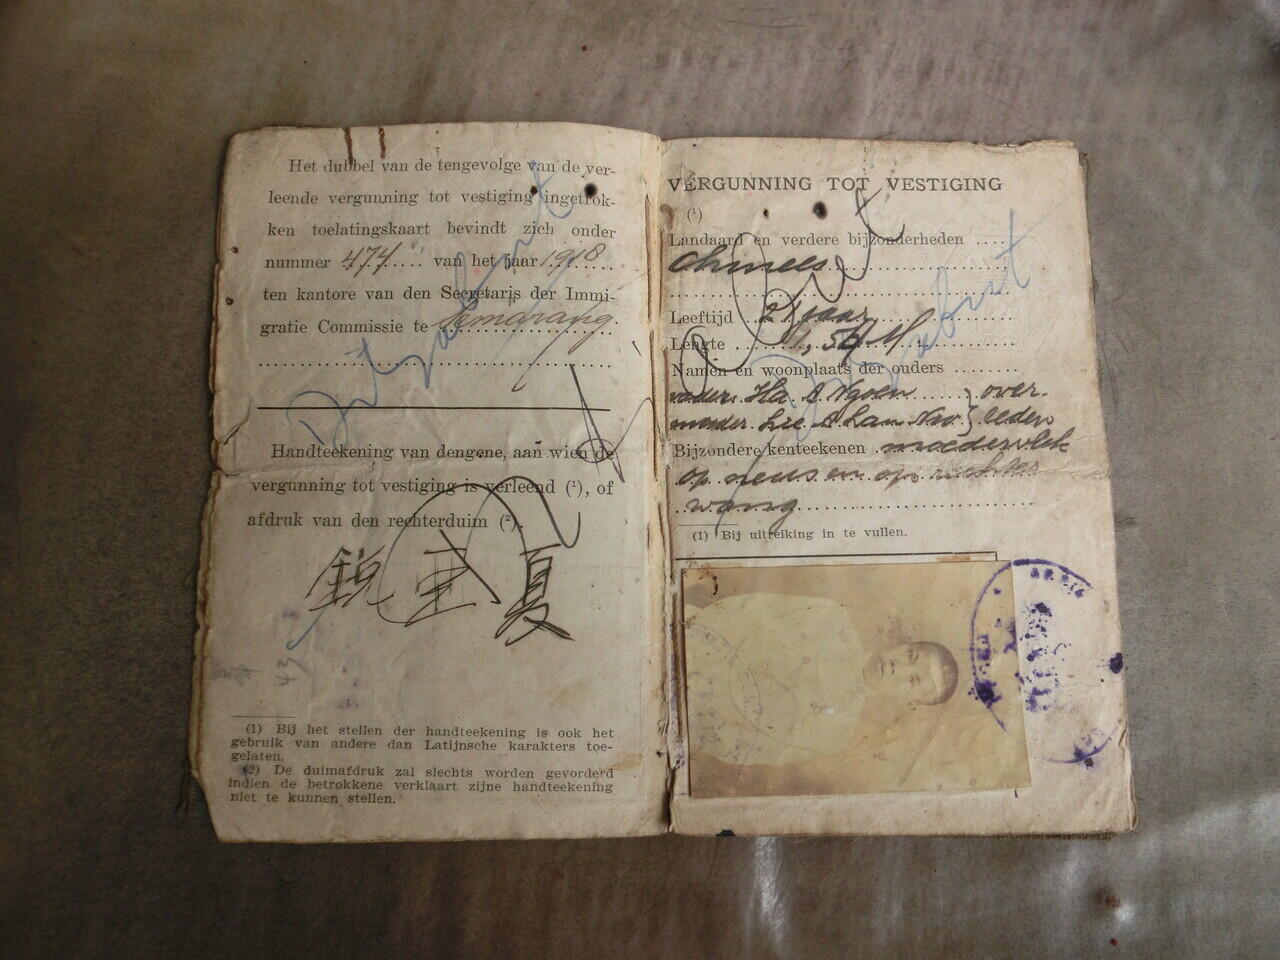 Het dubbel van de tengevolge van de ver-
leende vergunning tot vestiging ingetrok-
ken toelatingskaart bevindt zich onder
nummer 474 van het jaar 1918
ten kantore van den Secretaris der Immi-
gratie Commissie te Semarang
Handteekening van dengene, aan wien de
vergunning tot vestiging is verleend (¹), of
afdruk van den rechterduim (²).
夏亚銳
43
(1) Bij het stellen der handteekening is ook het
gebruik van andere dan Latijnsche karakters toe-
gelaten.
(2) De duimafdruk zal slechts worden gevorderd
indien de betrokkene verklaart zijne handteekening
niet te kunnen stellen.
VERGUNNING TOT VESTIGING
(¹)
Landaard en verdere bijzonderheden ....
Chinees
Leeftijd 21 jaar
Lengte 1,54 M
Namen en woonplaats der ouders
vader Ha A Ngoen } over-
moeder Lie A Lan Nio } leden
Bijzondere kenteekenen moedervlek
op neus en op rechter
wang
(1) Bij uitreiking in te vullen.